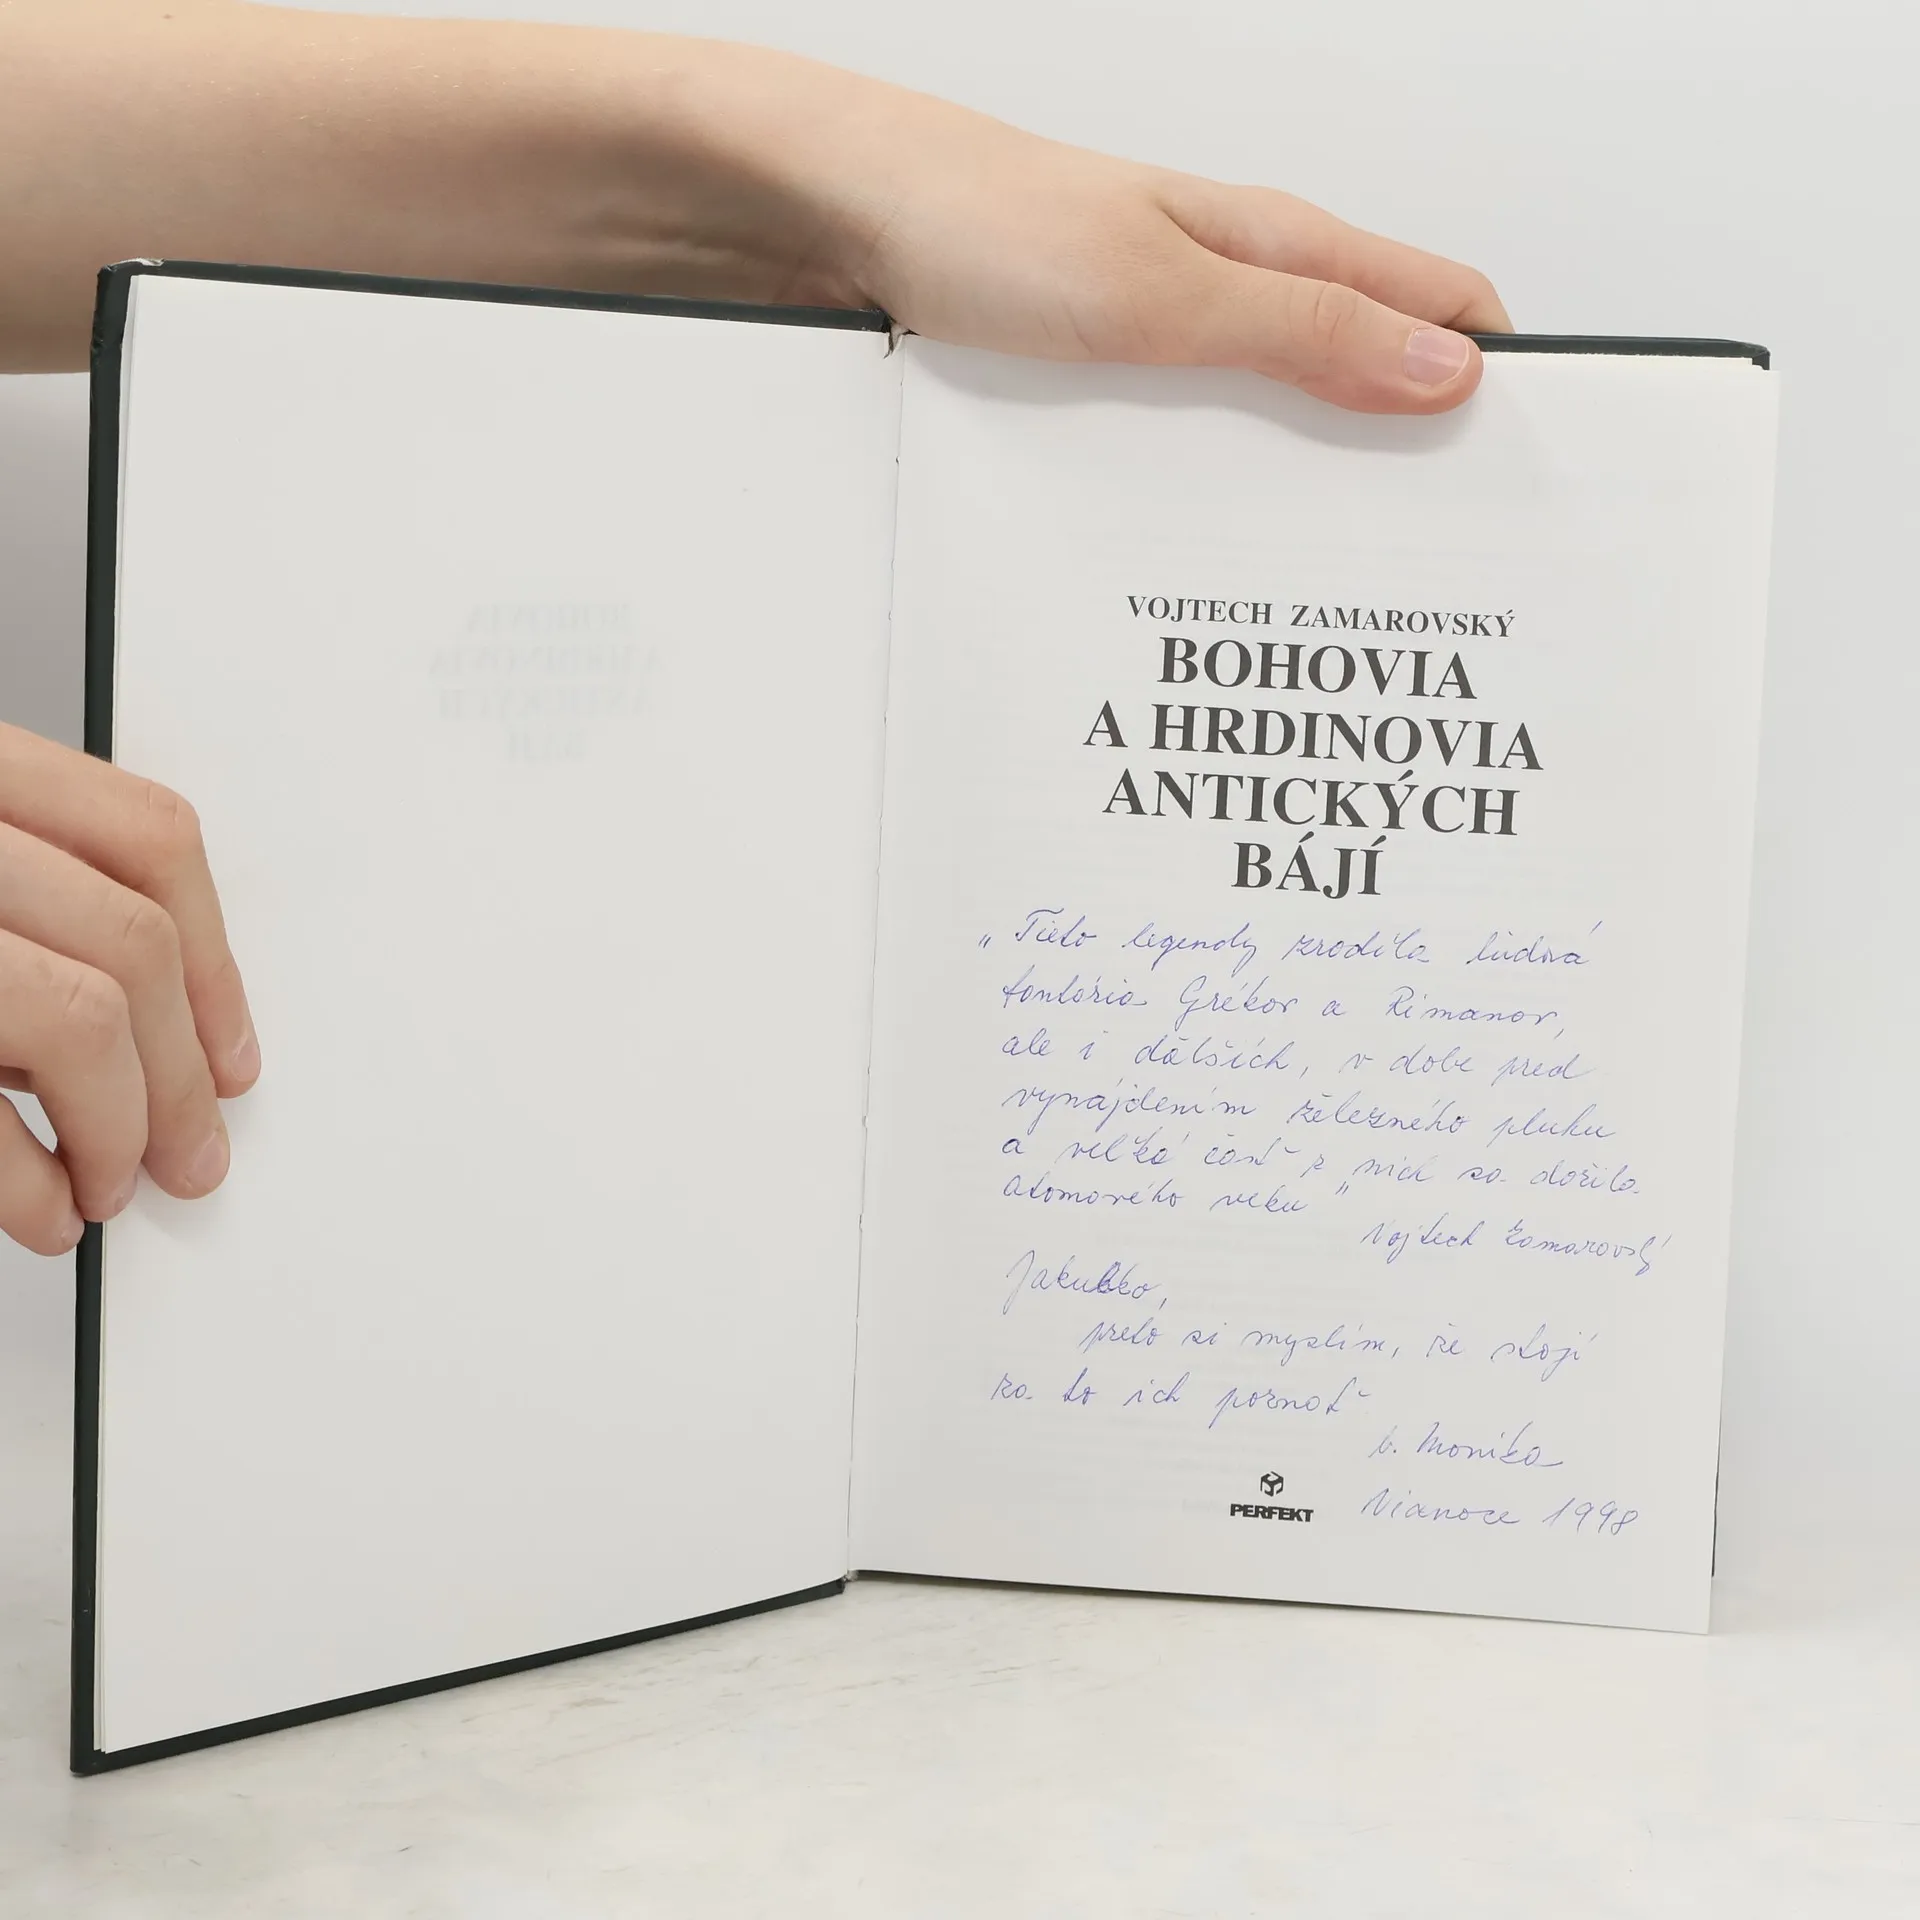 VOJTECH ZAMAROVSKÝ
BOHOVIA
A HRDINOVIA
ANTICKÝCH
BÁJÍ
„Tieto legendy zrodila ľudová
fantázia Grékov a Rimanov,
ale i ďalších, v dobe pred
vynájdením železného pluhu
a veľká časť z nich sa dožila
atomového veku"
Vojtech Zamarovský
Jakubko,
preto si myslím, že stojí
za to ich poznať
Monika
PERFEKT
Vianoce 1998